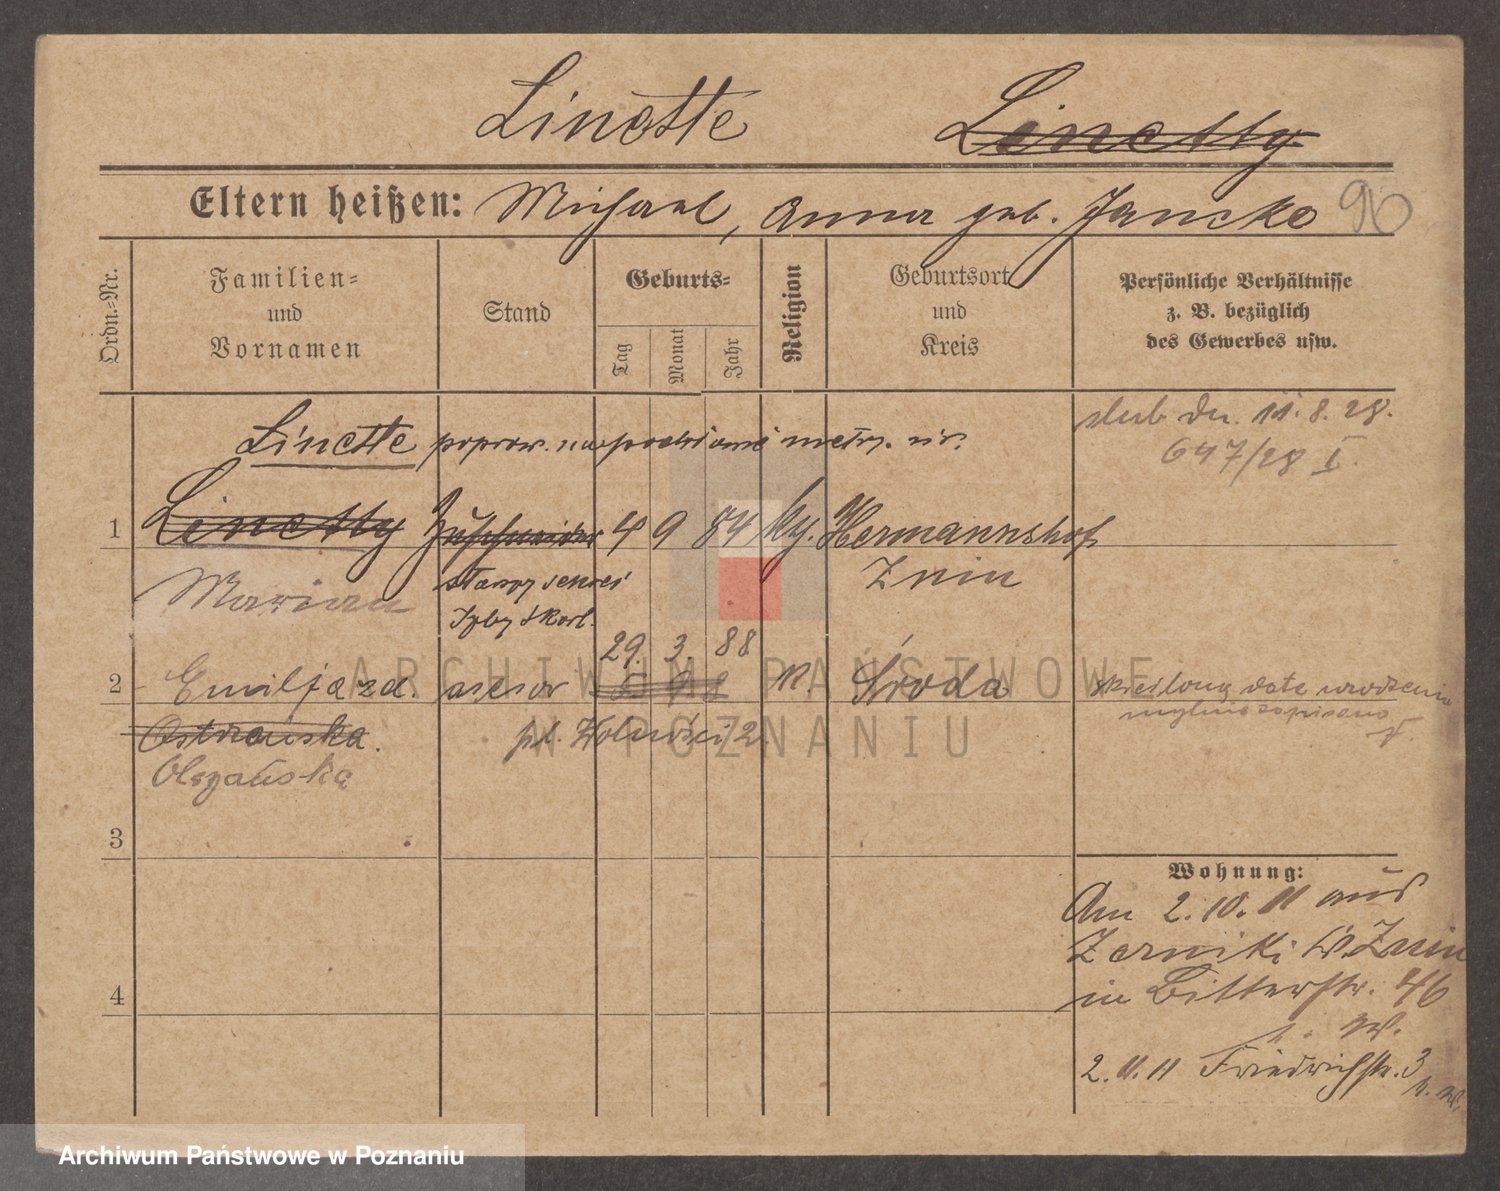 Linette Linetty
Eltern heißen: Michael, Anna geb. Jancke 90
Ordn.-Nr.
Familien-
und
Vornamen
Stand
Geburts-
Tag
Monat
Jahr
Religion
Geburtsort
und
Kreis
Persönliche Verhältnisse
z. B. bezüglich
des Gewerbes usw.
ślub dn. 11.8.28.
647/28 I.
Linette popraw. na podstawie metr. ur.
1 Linetty Zuschneider 4 9 84 kg. Hermannshof
Marian starszy
Znin
Izby Skarb.
29. 3. 88
2 Emilja zd. asesor K. Środa
Ostrowska.
Olszańska
pl. Wolności 2.
skreśloną datę urodzenia
mylnie zapisano
3
4
Wohnung:
Am 2.10.11 aus
Zerniki Kr. Znin
in Bitterstr. 46
b. W.
2.11.11 Friedrichstr. 3
b. W.
ARCHIWUM PAŃSTWOWE
W POZNANIU
Archiwum Państwowe w Poznaniu